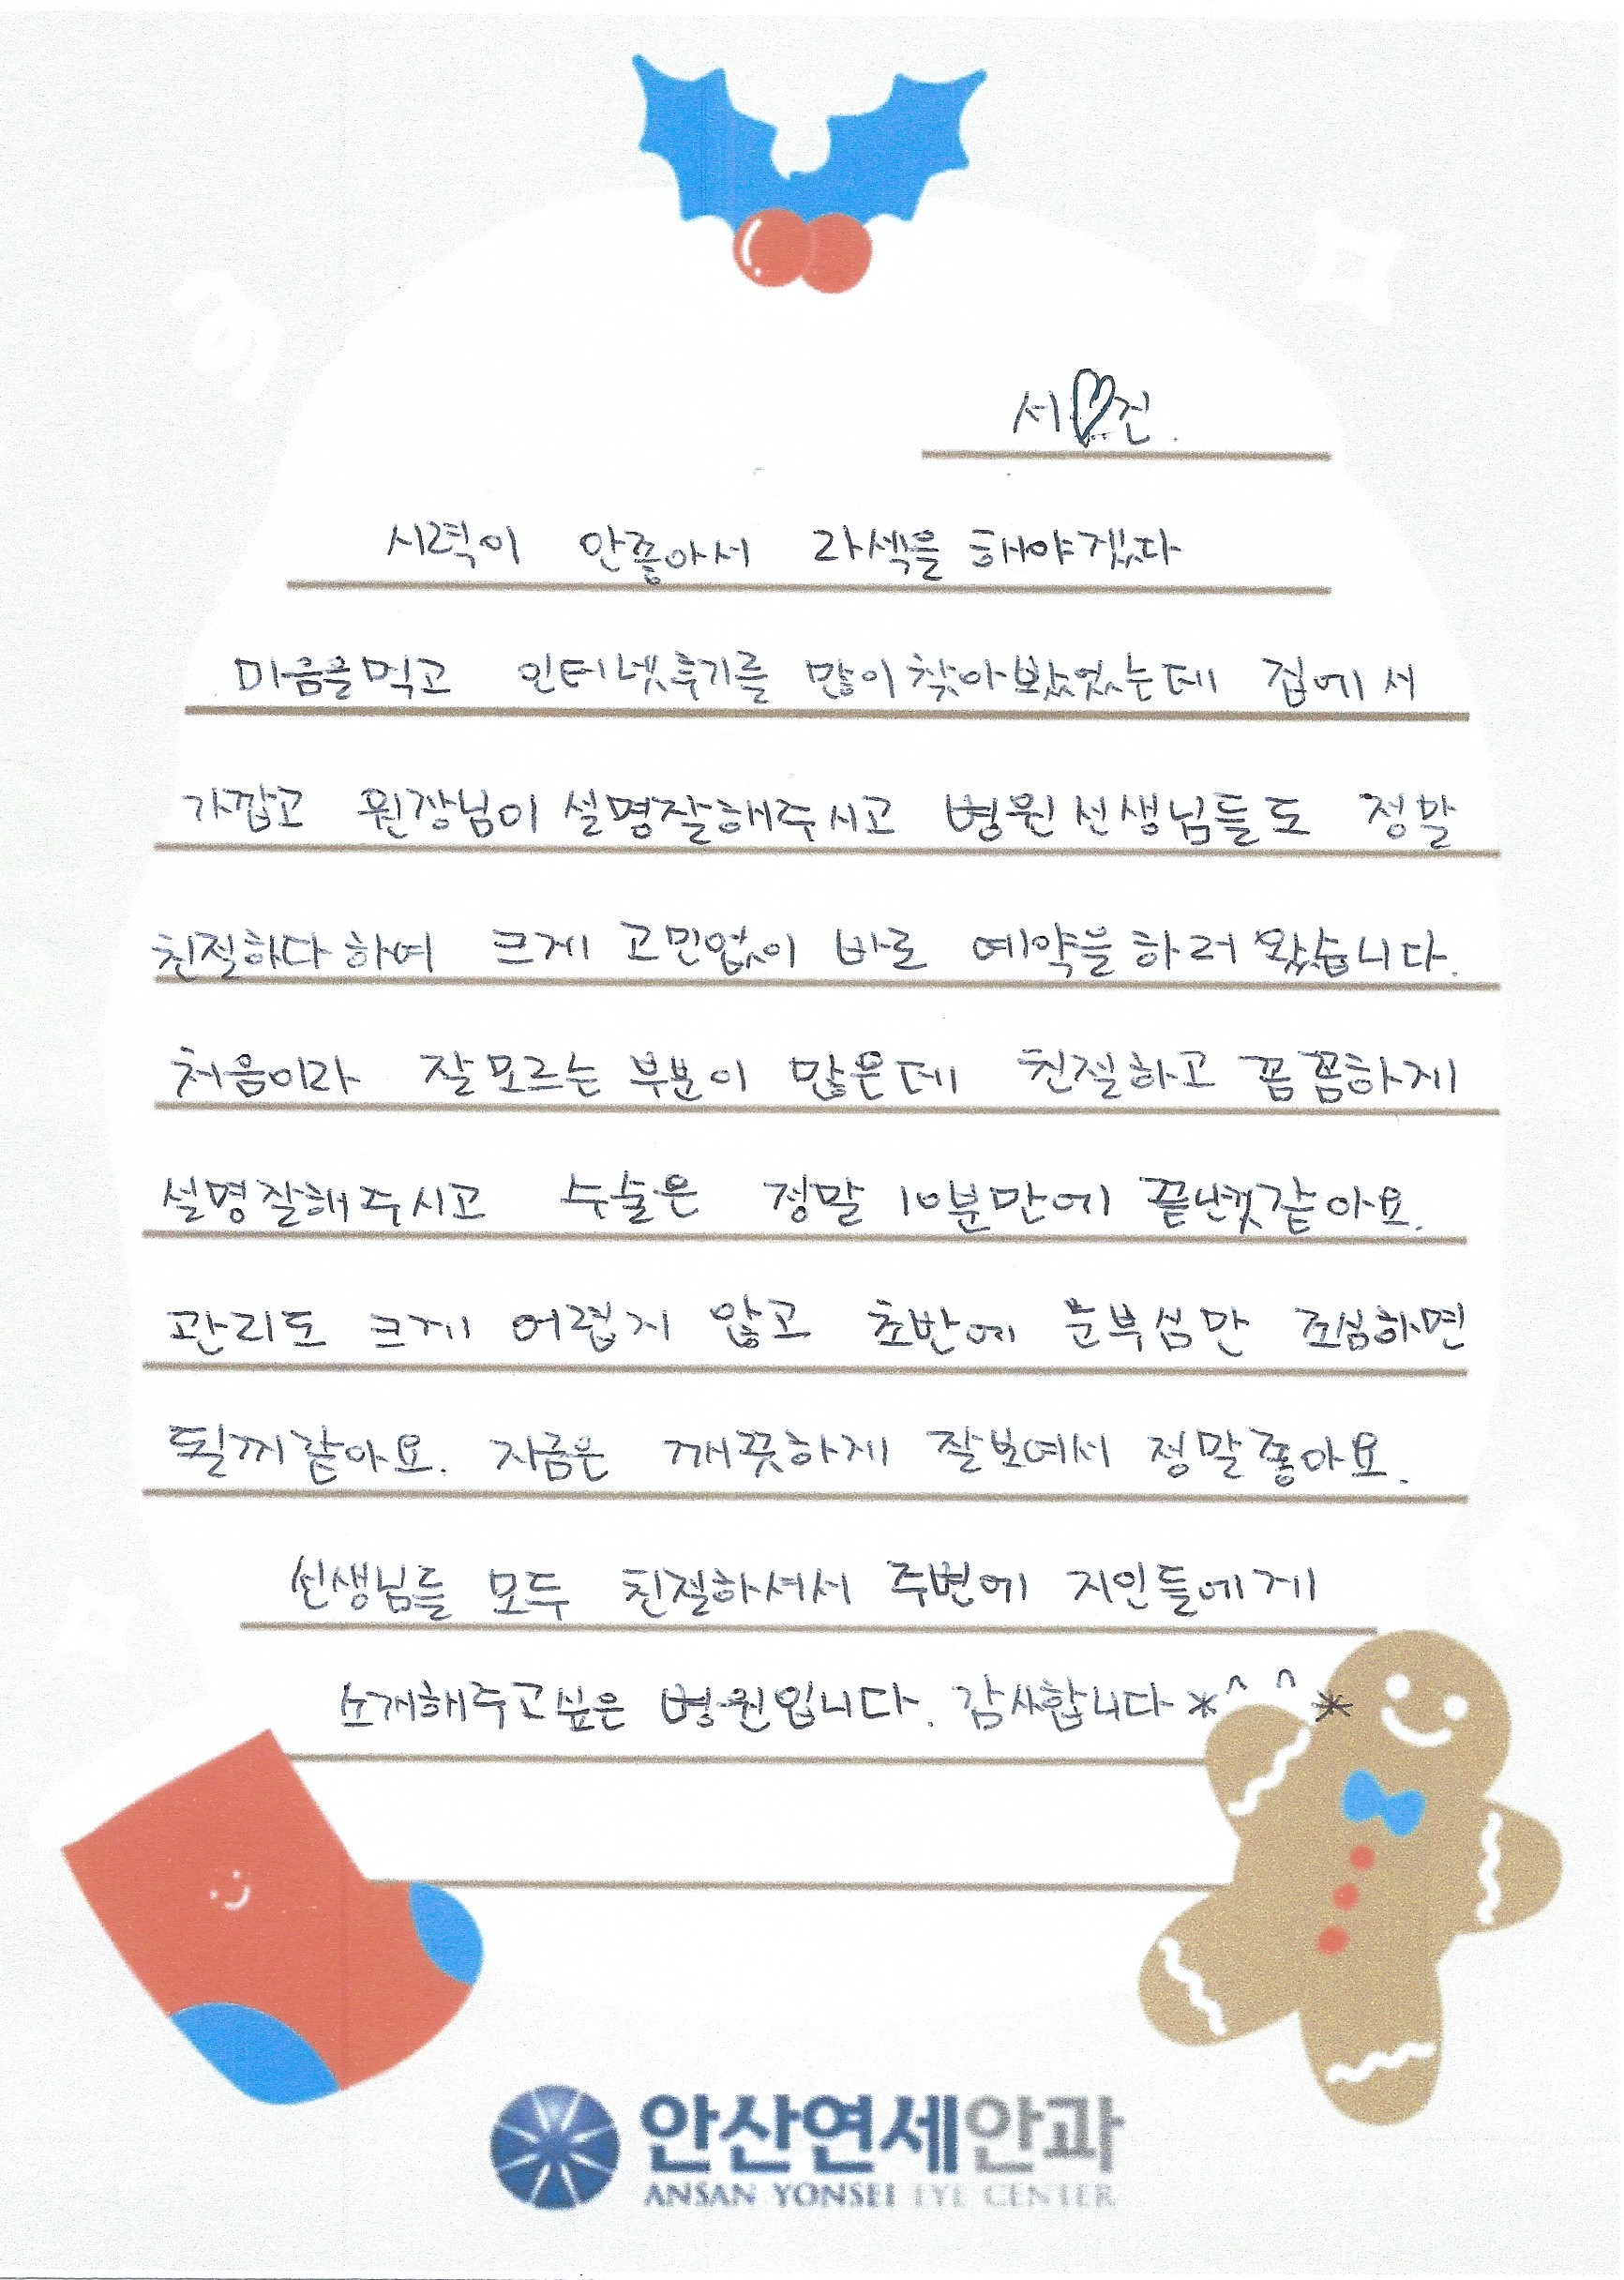 서♡진.
시력이 안좋아서 라섹을 해야겠다
마음을먹고 인터넷후기를 많이찾아봤었는데 집에서
가깝고 원장님이 설명잘해주시고 병원선생님들도 정말
친절하다하여 크게 고민없이 바로 예약을하러왔습니다.
처음이라 잘모르는부분이 많은데 친절하고 꼼꼼하게
설명잘해주시고 수술은 정말 10분만에 끝난것같아요.
관리도 크게 어렵지 않고 초반에 눈부심만 조심하면
될꺼같아요. 지금은 깨끗하게 잘보여서 정말좋아요.
선생님들 모두 친절하셔서 주변에 지인들에게
소개해주고싶은 병원입니다. 감사합니다*^ ^*
안산연세안과
ANSAN YONSEI EYE CENTER